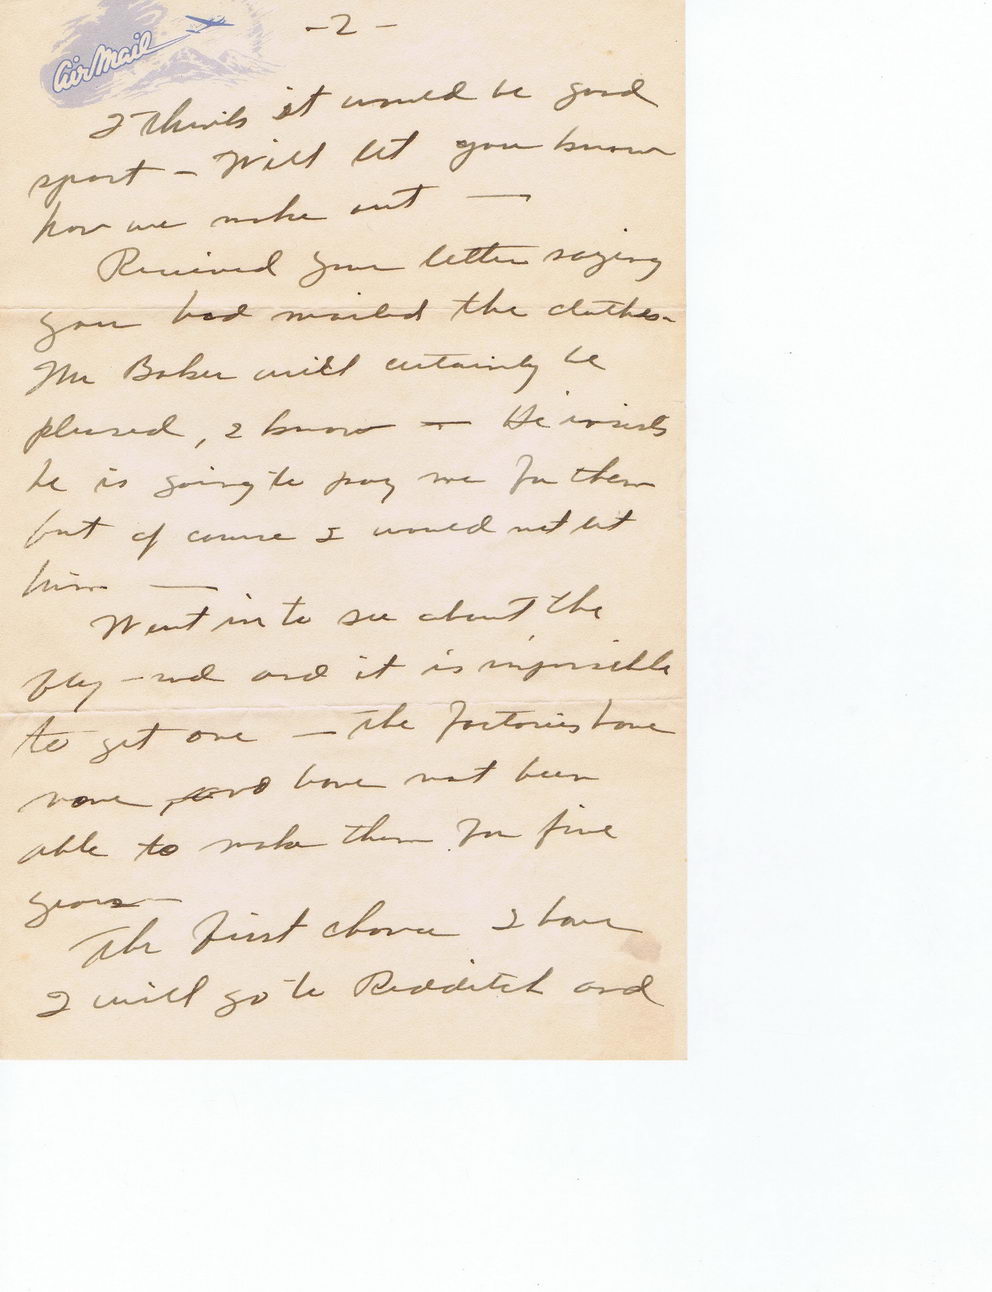 Air Mail
-2-
I think it would be good
sport - Will let you know
how we make out —
Received your letter saying
you had mailed the clothes -
Mr Baker will certainly be
pleased, I know — He insists
he is going to pay me for them
but of course I would not let
him —
Went in to see about the
fly-rod and it is impossible
to get one — The factories have
none, and have not been
able to make them for five
years —
The first chance I have
I will go to Redditch and